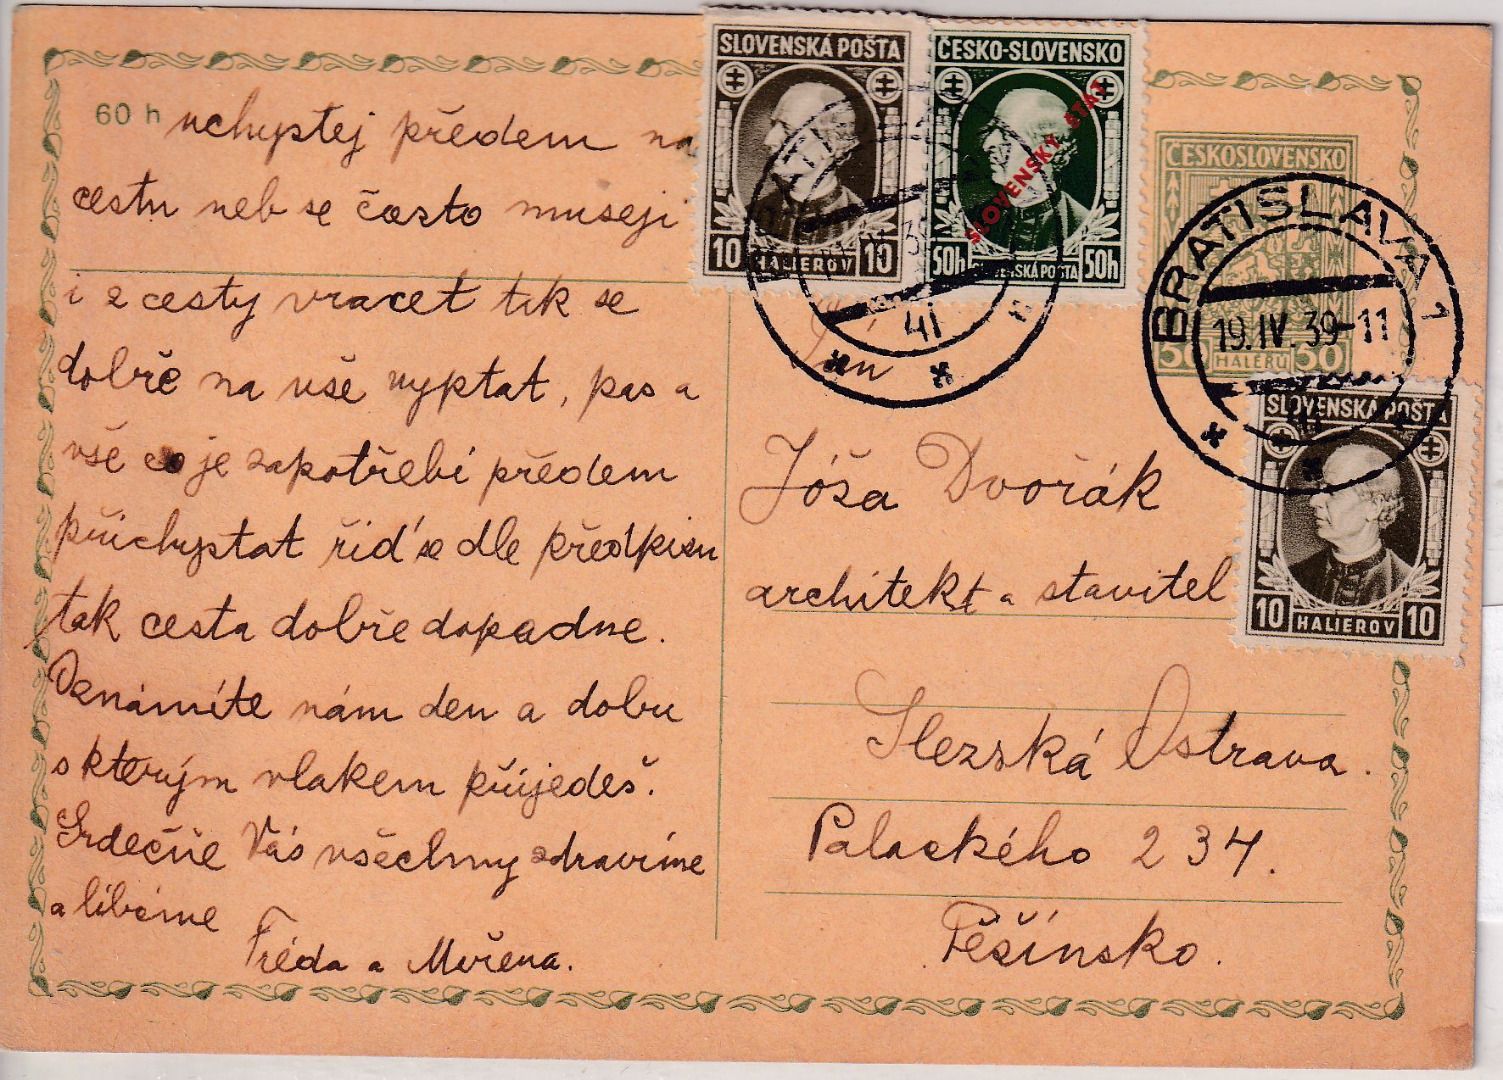 60 h
uchystej předem na
cestu neb se často museji
i z cesty vracet tak se
dobře na vše vyptat, pas a
vše co je zapotřebí předem
přichystat řiď se dle předpisu
tak cesta dobře dopadne.
Oznámíte nám den a dobu
s kterým vlakem přijedeš.
Srdečně Vás všechny zdravíme
a líbáme
a Mařena.
SLOVENSKÁ POŠTA
10 HALIEROV 10
ČESKO-SLOVENSKO
SLOVENSKÝ ŠTÁT
50h SLOVENSKÁ POŠTA 50h
41
ČESKOSLOVENSKO
50 HALÉŘŮ 50
BRATISLAVA 1
19.IV.39-11
SLOVENSKÁ POŠTA
10 HALIEROV 10
Pán
Jóža Dvořák
architekt a stavitel
Slezská Ostrava.
Palackého 234.
Těšínsko.